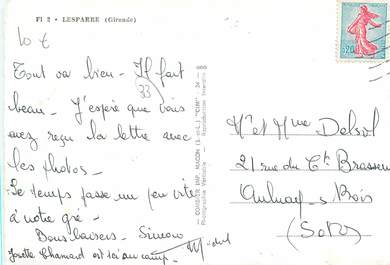 FI 2 - LESPARRE (Gironde)
10 €
Tout va bien - Il fait
33
beau - J'espère que vous
avez reçu la lettre avec
les photos -
Le temps passe un peu vite
à notre gré -
Bons baisers - Simon
Josette Chamard est ici au camp.
COMBIER IMP. MACON (S.-et-L.) "CIM"
Photographie Véritable - Reproduction Interdite
0,20
Mr et Mme Delsol
21 rue du Ct Brasseu
Aulnay-s-Bois
(S et O)